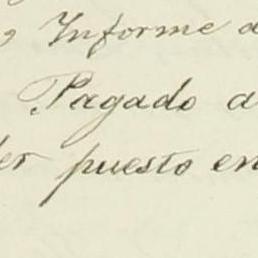 Informe d
Pagado a
er puesto en